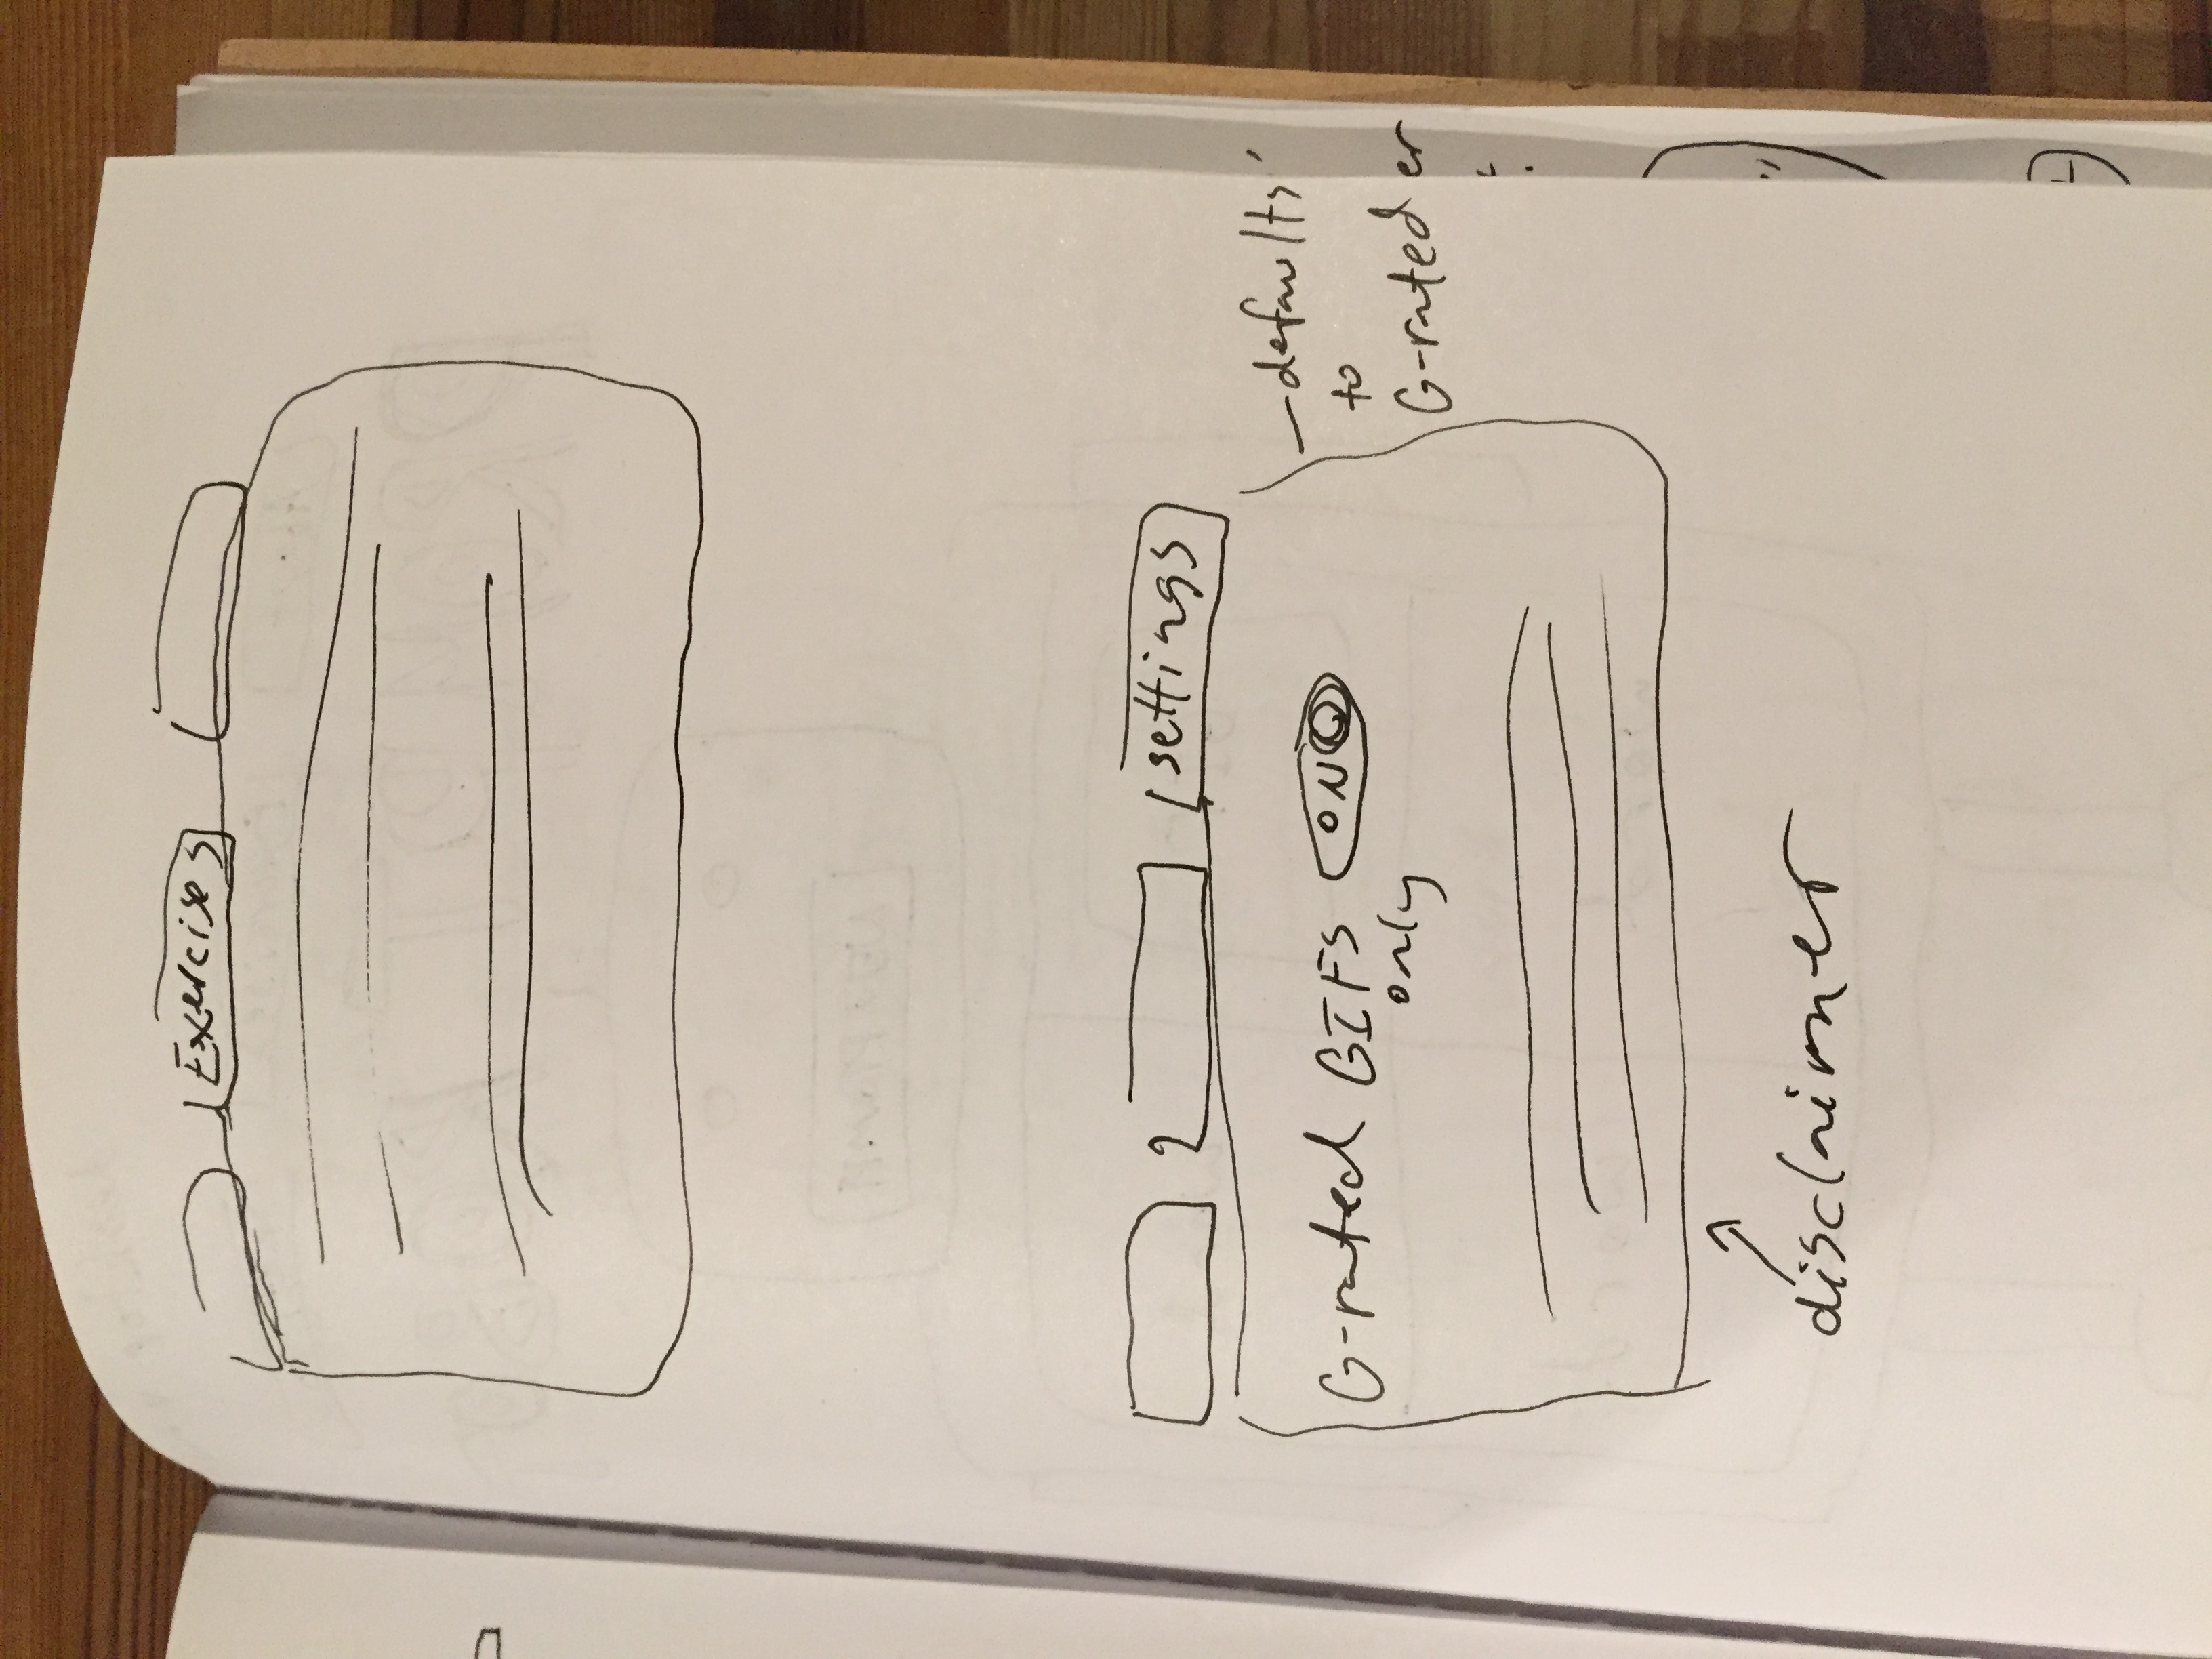 Exercises
settings
G-rated GIFS ON
only
-defaults
to
G-rated
er
disclaimer